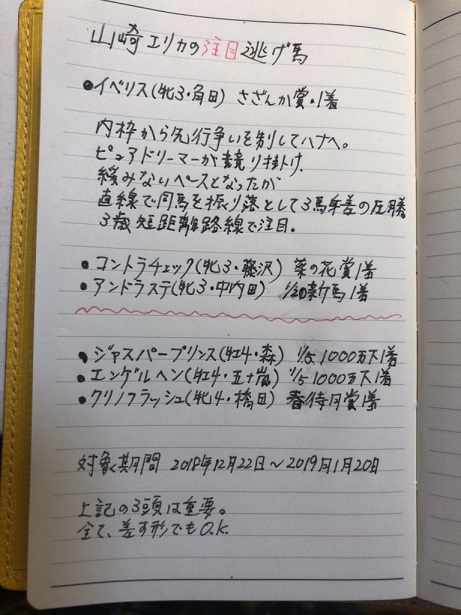 山崎エリカの注目逃げ馬
●イベリス(牝3・角田) さざんか賞・1着
内枠から先行争いを制してハナへ。
ピュアドリーマーが競り掛け、
緩みないペースとなったが
直線で同馬を振り落として3馬身差の圧勝
3歳短距離路線で注目。
●コントラチェック(牝3・藤沢) 菜の花賞1着
●アンドラステ(牝3・中内田) 1/20新馬1着
●ジャスパープリンス(牡4・森) 1/5 1000万下1着
●エンゲルヘン(牡4・五十嵐) 1/5 1000万下1着
●クリノフラッシュ(牝4・橋田) 春待月賞1着
対象期間 2018年12月22日~2019年1月20日
上記の3頭は重要。
全て、差す形でもO.K.